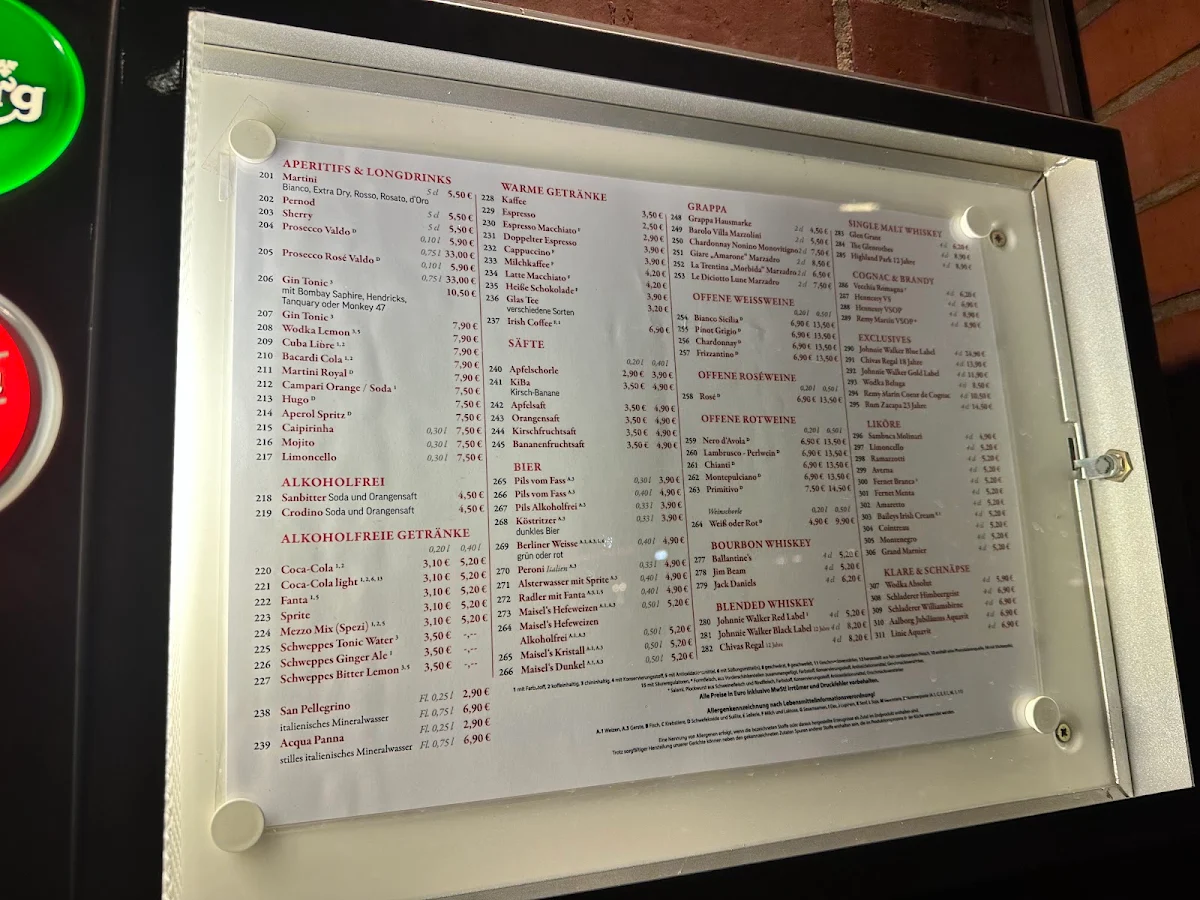 rg
APERITIFS & LONGDRINKS
201 Martini 5 cl 5,50 €
Bianco, Extra Dry, Rosso, Rosato, d'Oro
202 Pernod 5 cl 5,50 €
203 Sherry 5 cl 5,50 €
204 Prosecco Valdo D 0,10 l 5,90 €
0,75 l 33,00 €
205 Prosecco Rosé Valdo D 0,10 l 5,90 €
0,75 l 33,00 €
206 Gin Tonic 3 10,50 €
mit Bombay Saphire, Hendricks,
Tanquary oder Monkey 47
207 Gin Tonic 3 7,90 €
208 Wodka Lemon 3, 5 7,90 €
209 Cuba Libre 1, 2 7,90 €
210 Bacardi Cola 1, 2 7,90 €
211 Martini Royal D 7,90 €
212 Campari Orange / Soda 1 7,50 €
213 Hugo D 7,50 €
214 Aperol Spritz D 7,50 €
215 Caipirinha 0,30 l 7,50 €
216 Mojito 0,30 l 7,50 €
217 Limoncello 0,30 l 7,50 €
ALKOHOLFREI
218 Sanbitter Soda und Orangensaft 4,50 €
219 Crodino Soda und Orangensaft 4,50 €
ALKOHOLFREIE GETRÄNKE
0,20 l 0,40 l
220 Coca-Cola 1, 2 3,10 € 5,20 €
221 Coca-Cola light 1, 2, 6, 13 3,10 € 5,20 €
222 Fanta 1, 5 3,10 € 5,20 €
223 Sprite 3,10 € 5,20 €
224 Mezzo Mix (Spezi) 1, 2, 5 3,10 € 5,20 €
225 Schweppes Tonic Water 3 3,50 € -,--
226 Schweppes Ginger Ale 1 3,50 € -,--
227 Schweppes Bitter Lemon 3, 5 3,50 € -,--
238 San Pellegrino Fl. 0,25 l 2,90 €
italienisches Mineralwasser Fl. 0,75 l 6,90 €
239 Acqua Panna Fl. 0,25 l 2,90 €
stilles italienisches Mineralwasser Fl. 0,75 l 6,90 €
WARME GETRÄNKE
228 Kaffee 3,50 €
229 Espresso 2,50 €
230 Espresso Macchiato F 2,90 €
231 Doppelter Espresso 3,90 €
232 Cappuccino F 3,90 €
233 Milchkaffee F 4,20 €
234 Latte Macchiato F 4,20 €
235 Heiße Schokolade F 3,90 €
236 Glas Tee 3,20 €
verschiedene Sorten
237 Irish Coffee 6,90 €
SÄFTE
0,20 l 0,40 l
240 Apfelschorle 2,90 € 3,90 €
241 KiBa 3,50 € 4,90 €
Kirsch-Banane
242 Apfelsaft 3,50 € 4,90 €
243 Orangensaft 3,50 € 4,90 €
244 Kirschfruchtsaft 3,50 € 4,90 €
245 Bananenfruchtsaft 3,50 € 4,90 €
BIER
265 Pils vom Fass A.3 0,30 l 3,90 €
266 Pils vom Fass A.3 0,40 l 4,90 €
267 Pils Alkoholfrei A.3 0,33 l 3,90 €
268 Köstritzer A.3 0,33 l 3,90 €
dunkles Bier
269 Berliner Weisse 0,40 l 4,90 €
grün oder rot
270 Peroni Italien A.3 0,33 l 4,90 €
271 Alsterwasser mit Sprite A.3 0,40 l 4,90 €
272 Radler mit Fanta 0,40 l 4,90 €
273 Maisel's Hefeweizen A.1, A.3 0,50 l 5,20 €
264 Maisel's Hefeweizen
Alkoholfrei A.1, A.3 0,50 l 5,20 €
265 Maisel's Kristall A.1, A.3 0,50 l 5,20 €
266 Maisel's Dunkel A.1, A.3 0,50 l 5,20 €
GRAPPA
248 Grappa Hausmarke 2 cl 4,50 €
249 Barolo Villa Mazzolini 2 cl 5,50 €
250 Chardonnay Nonino Monovitigno 2 cl 7,50 €
251 Giare „Amarone" Marzadro 2 cl 8,50 €
252 La Trentina „Morbida" Marzadro 2 cl 6,50 €
253 Le Diciotto Lune Marzadro 2 cl 7,50 €
OFFENE WEISSWEINE
0,20 l 0,50 l
254 Bianco Sicilia D 6,90 € 13,50 €
255 Pinot Grigio D 6,90 € 13,50 €
256 Chardonnay D 6,90 € 13,50 €
257 Frizzantino D 6,90 € 13,50 €
OFFENE ROSÉWEINE
0,20 l 0,50 l
258 Rosé D 6,90 € 13,50 €
OFFENE ROTWEINE
0,20 l 0,50 l
259 Nero d'Avola D 6,90 € 13,50 €
260 Lambrusco - Perlwein D 6,90 € 13,50 €
261 Chianti D 6,90 € 13,50 €
262 Montepulciano D 6,90 € 13,50 €
263 Primitivo D 7,50 € 14,50 €
Weinschorle 0,20 l 0,50 l
264 Weiß oder Rot D 4,90 € 9,90 €
BOURBON WHISKEY
277 Ballantine's 4 cl 5,20 €
278 Jim Beam 4 cl 5,20 €
279 Jack Daniels 4 cl 6,20 €
BLENDED WHISKEY
280 Johnnie Walker Red Label 1 4 cl 5,20 €
281 Johnnie Walker Black Label 12 Jahre 4 cl 8,20 €
282 Chivas Regal 12 Jahre 4 cl 8,20 €
SINGLE MALT WHISKEY
283 Glen Grant 4 cl 6,20 €
284 The Glenrothes 4 cl 8,90 €
285 Highland Park 12 Jahre 4 cl 8,90 €
COGNAC & BRANDY
286 Vecchia Romagna 4 cl 6,20 €
287 Hennessy VS 4 cl 6,90 €
288 Hennessy VSOP 4 cl 8,90 €
289 Remy Martin VSOP 4 cl 8,90 €
EXCLUSIVES
290 Johnnie Walker Blue Label
291 Chivas Regal 18 Jahre 4 cl 13,90 €
292 Johnnie Walker Gold Label
293 Wodka Beluga 4 cl 8,90 €
294 Remy Martin Coeur de Cognac 4 cl 10,50 €
295 Rum Zacapa 23 Jahre 4 cl 14,50 €
LIKÖRE
296 Sambuca Molinari 4 cl 4,90 €
297 Limoncello 4 cl 5,20 €
298 Ramazzotti 4 cl 5,20 €
299 Averna 4 cl 5,20 €
300 Fernet Branca 4 cl 5,20 €
301 Fernet Menta 4 cl 5,20 €
302 Amaretto 4 cl 5,20 €
303 Baileys Irish Cream 4 cl 5,20 €
304 Cointreau 4 cl 5,20 €
305 Montenegro 4 cl 5,20 €
306 Grand Marnier 4 cl 5,20 €
KLARE & SCHNÄPSE
307 Wodka Absolut 4 cl 5,90 €
308 Schladerer Himbeergeist 4 cl 6,90 €
309 Schladerer Williamsbirne 4 cl 6,90 €
310 Aalborg Jubiläums Aquavit 4 cl 6,90 €
311 Linie Aquavit 4 cl 6,90 €
Alle Preise in Euro inklusive MwSt! Irrtümer und Druckfehler vorbehalten.
Allergenkennzeichnung nach Lebensmittelinformationsverordnung!